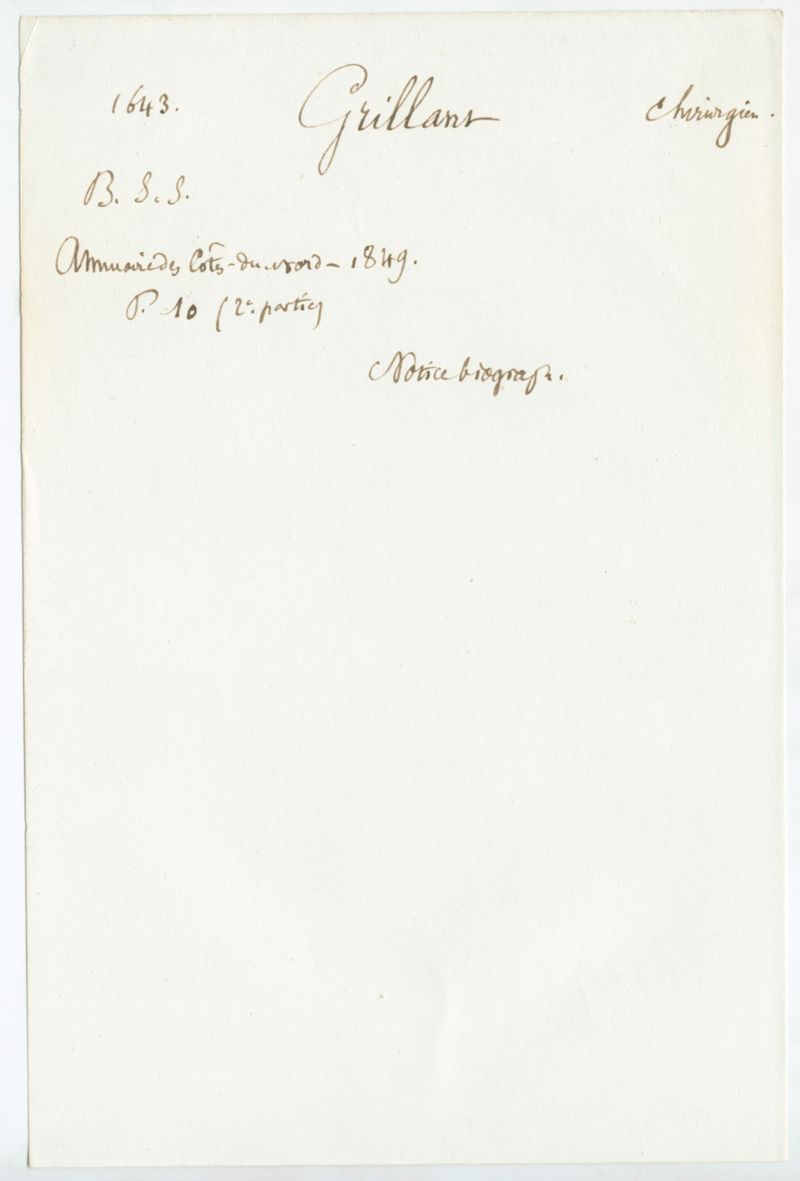 1643. Grillant chirurgien.
B. S. S.
Annuaire des Côtes-du-nord - 1849.
P. 10 (2e. partie)
Notice biograph.